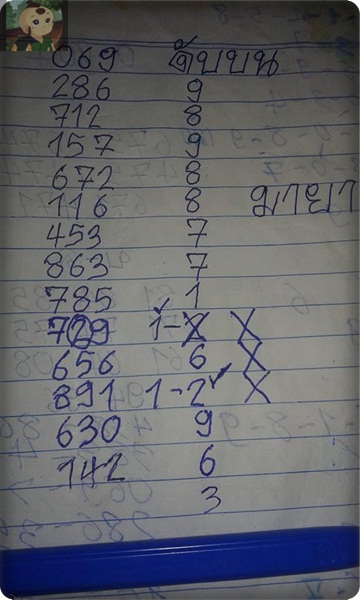 069 ดับบน
286 9
712 8
157 9
672 8
116 8
มายา
453 7
863 7
785 1
729 1-X X
656 6 X
891 1-2 X
630 9
142 6
3